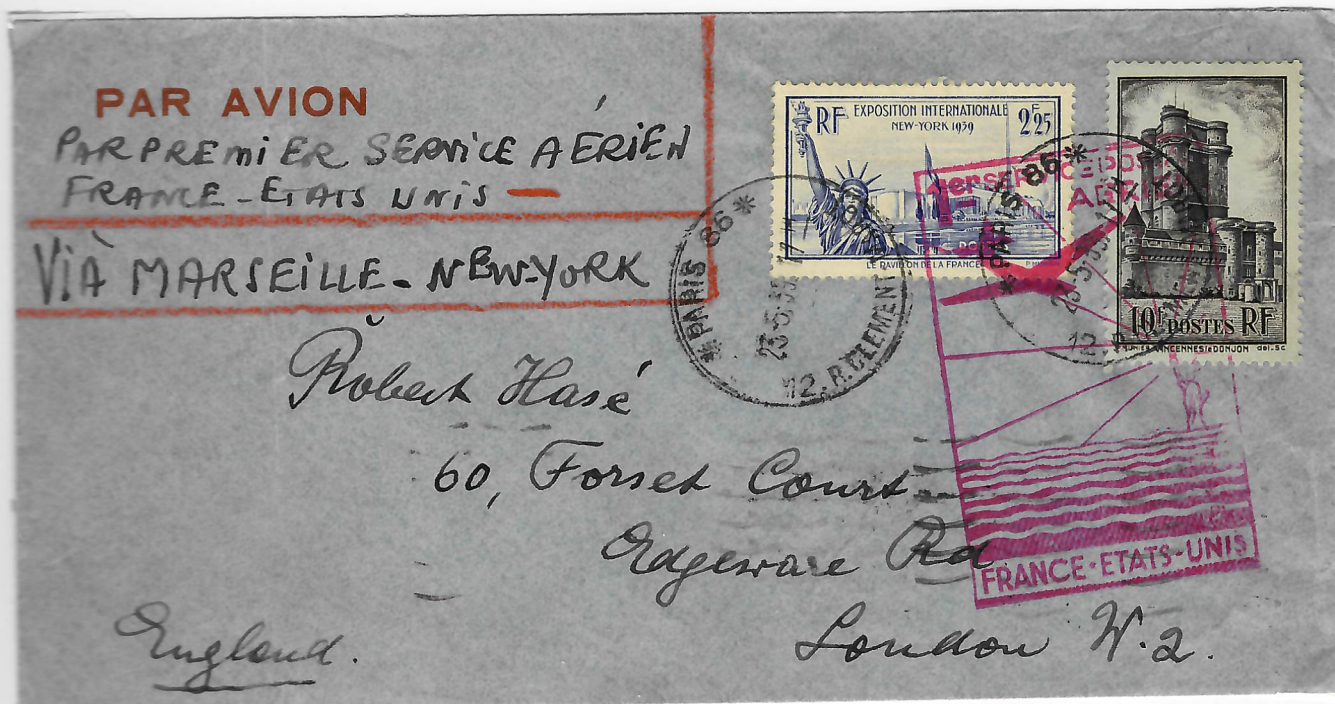 PAR AVION
PAR PREMIER SERVICE AÉRIEN
FRANCE - ETATS UNIS —
VIÀ MARSEILLE - NEW-YORK
RF EXPOSITION INTERNATIONALE 2F25
NEW-YORK 1939
LE PAVILLON DE LA FRANCE
10F POSTES RF
VINCENNES LE DONJON del. Sc
* PARIS 86 *
23-5 39
12. R. CLEMENT
* PARIS 86 *
23-5 39
12. R.
1er SERVICE POST
AER
FRANCE-ETATS-UNIS
Robert Hasé
60, Forset Court
Edgeware Rd
London W.2.
England.